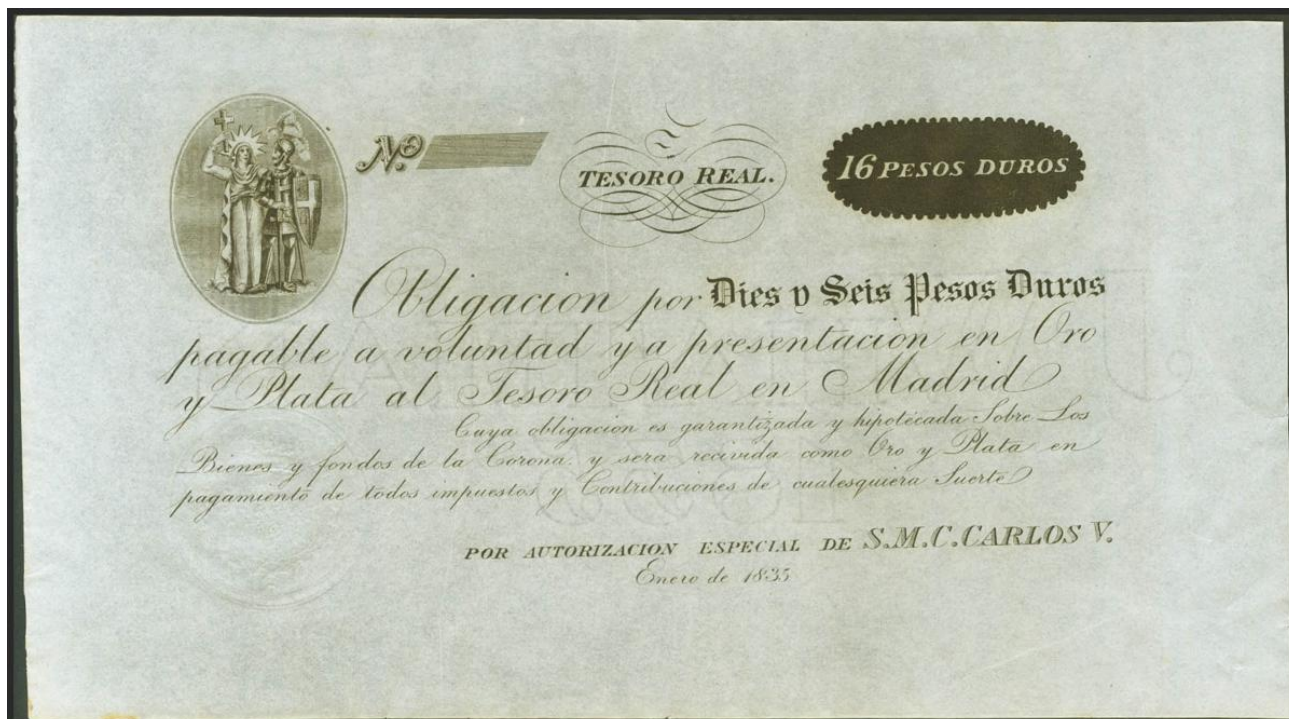 N.º
TESORO REAL.
16 PESOS DUROS
Obligacion por Dies y Seis Pesos Duros
pagable a voluntad y a presentacion en Oro
y Plata al Tesoro Real en Madrid
Cuya obligacion es garantizada y hipotécada Sobre Los
Bienes y fondos de la Corona. y sera recivida como Oro y Plata en
pagamiento de todos impuestos y Contribuciones de cualesquiera Suerte
POR AUTORIZACION ESPECIAL DE S.M.C. CARLOS V.
Enero de 1835